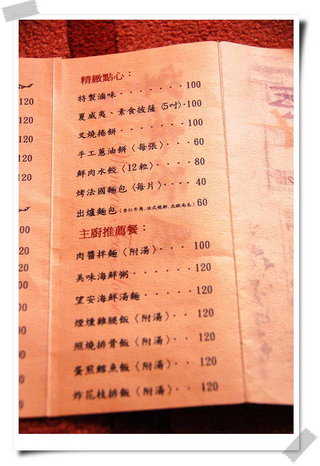 精緻點心：
特製滷味········100
夏威夷、素食披薩(5吋)·100
叉燒捲餅········100
手工蔥油餅〈每張〉···60
鮮肉水餃〈12粒〉····80
烤法國麵包〈每片〉····40
出爐麵包 60
主廚推薦餐：
肉醬拌麵〈附湯〉···100
美味海鮮粥·······120
望安海鮮湯麵······120
煙燻雞腿飯〈附湯〉··120
照燒排骨飯〈附湯〉··120
蛋煎鱈魚飯〈附湯〉··120
炸花枝排飯〈附湯〉··120
120
120
120
120
120
120
120